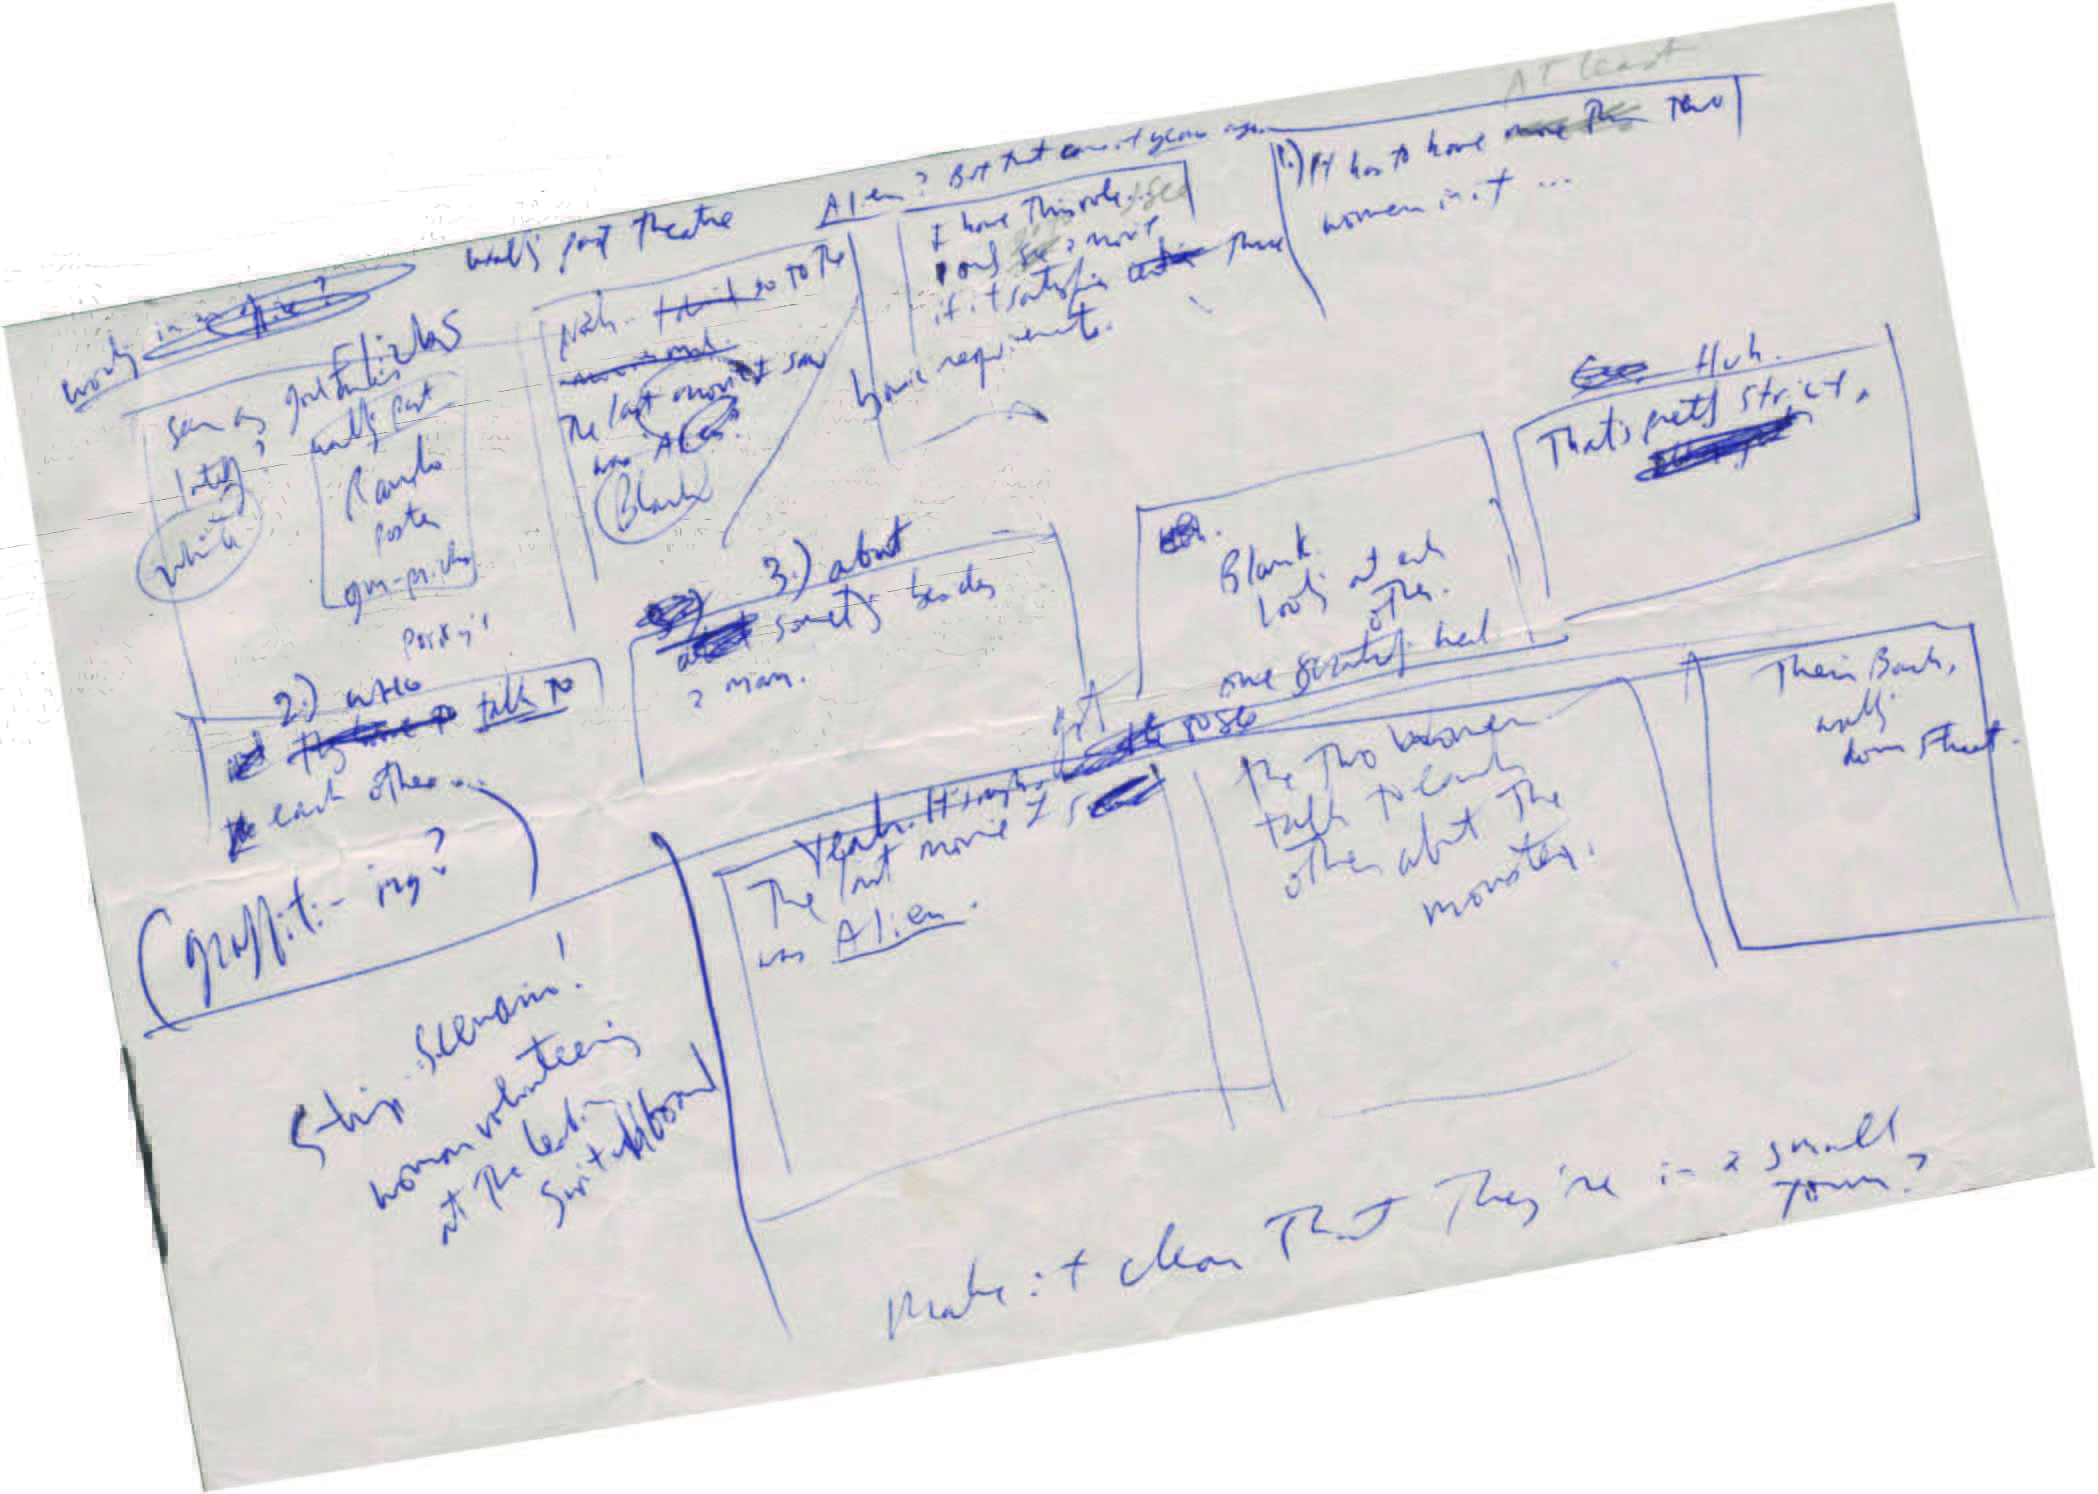 walk past theatre
Alien? But that came out years ago.
At least
Seen any good flicks
lately?
white
walk past
Rambo
poster
Porky's
Nah. go to the
The last movie I saw
was Alien.
Blank
I have this rule. I see
only a movie
if it satisfies three
basic requirements.
1.) It has to have more than two
women in it ...
2.) who
talk to
each other...
3.) about
about something besides
a man.
Blank.
Looks at each
other.
one scratches head
Huh.
That's pretty strict.
(graffiti-ing?)
Yeah. It's rough.
got to see
The last movie I
was Alien.
The two women
talk to each
other about the
monster.
Their Backs,
walk
down street.
Strip scenario!
woman volunteering
at the lesbian
switchboard
Make it clear that they're in a small
town?